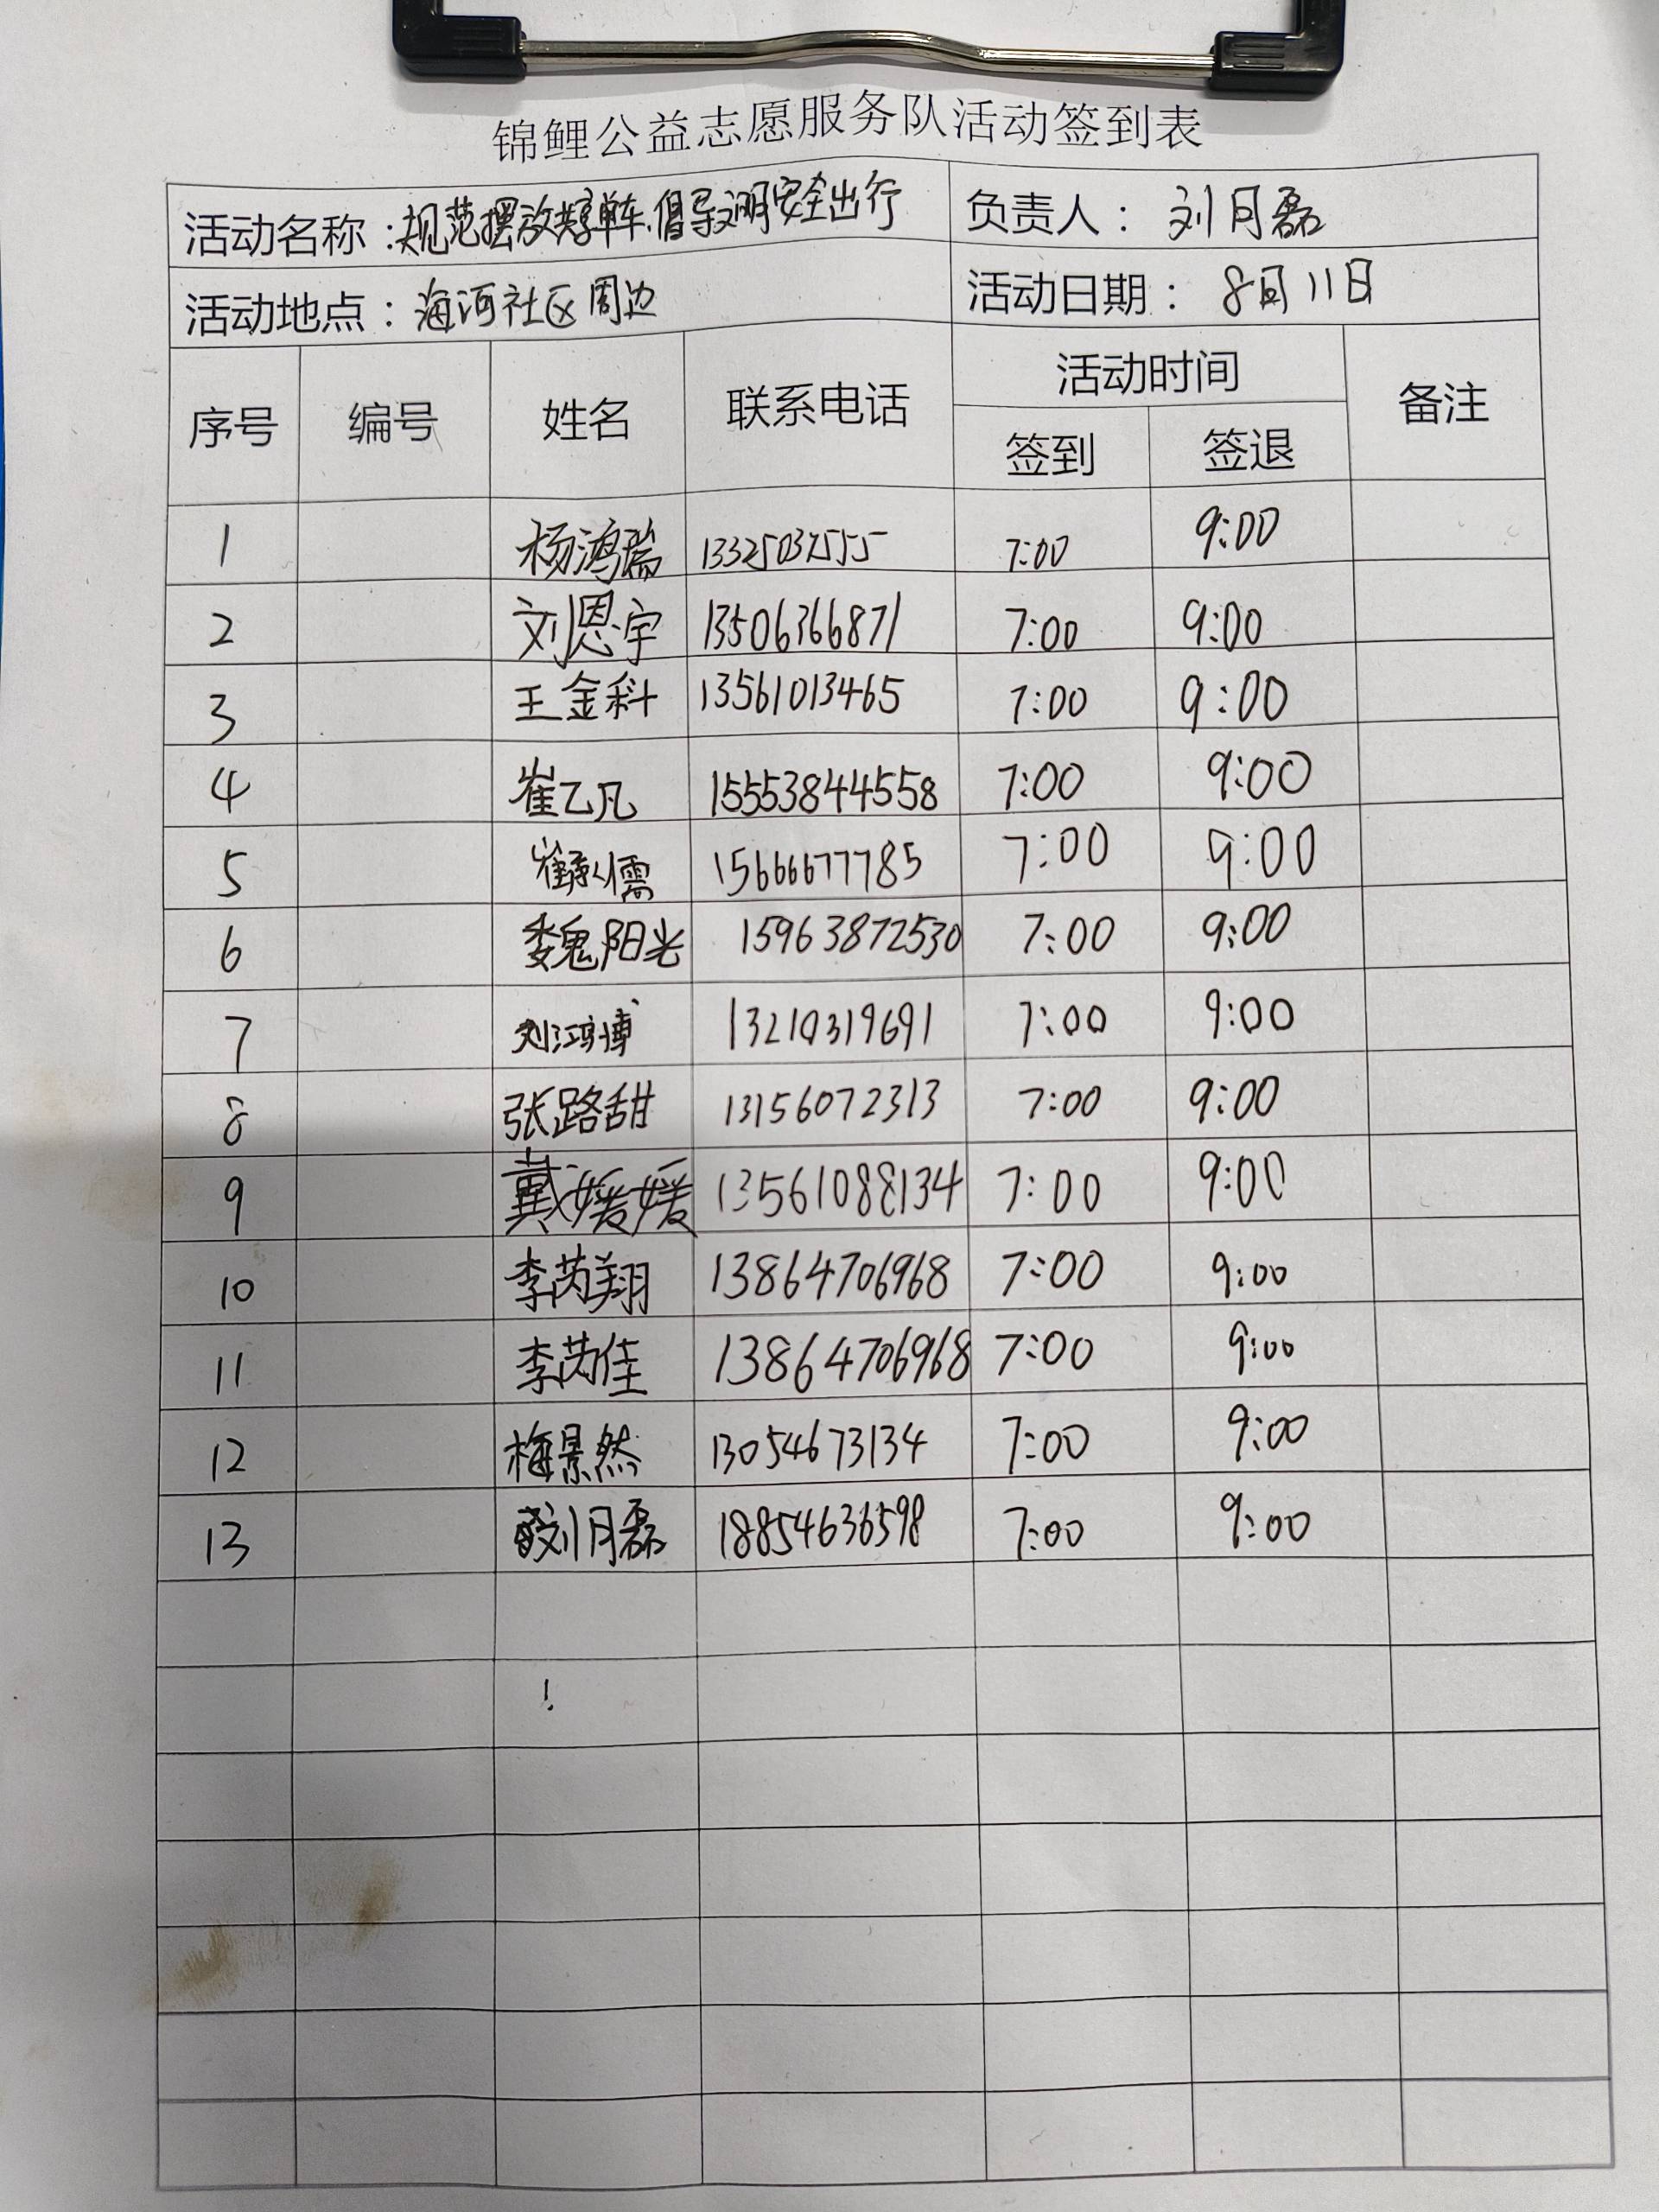 锦鲤公益志愿服务队活动签到表
活动名称：规范摆放共享单车.倡导文明安全出行 负责人：刘月磊
活动地点：海河社区周边 活动日期：8月11日
序号 编号 姓名 联系电话 活动时间 备注
签到 签退
1 杨鸿瑞 13325037555 7:00 9:00
2 刘恩宇 13506366871 7:00 9:00
3 王金科 13561013465 7:00 9:00
4 崔乙凡 15553844558 7:00 9:00
5 崔承儒 15666677785 7:00 9:00
6 魏阳光 15963872530 7:00 9:00
7 刘鸿博 13210319691 7:00 9:00
8 张路甜 13156072313 7:00 9:00
9 戴媛媛 13561088134 7:00 9:00
10 李芮翔 13864706968 7:00 9:00
11 李芮佳 13864706968 7:00 9:00
12 梅景然 13054673134 7:00 9:00
13 刘月磊 18854636598 7:00 9:00